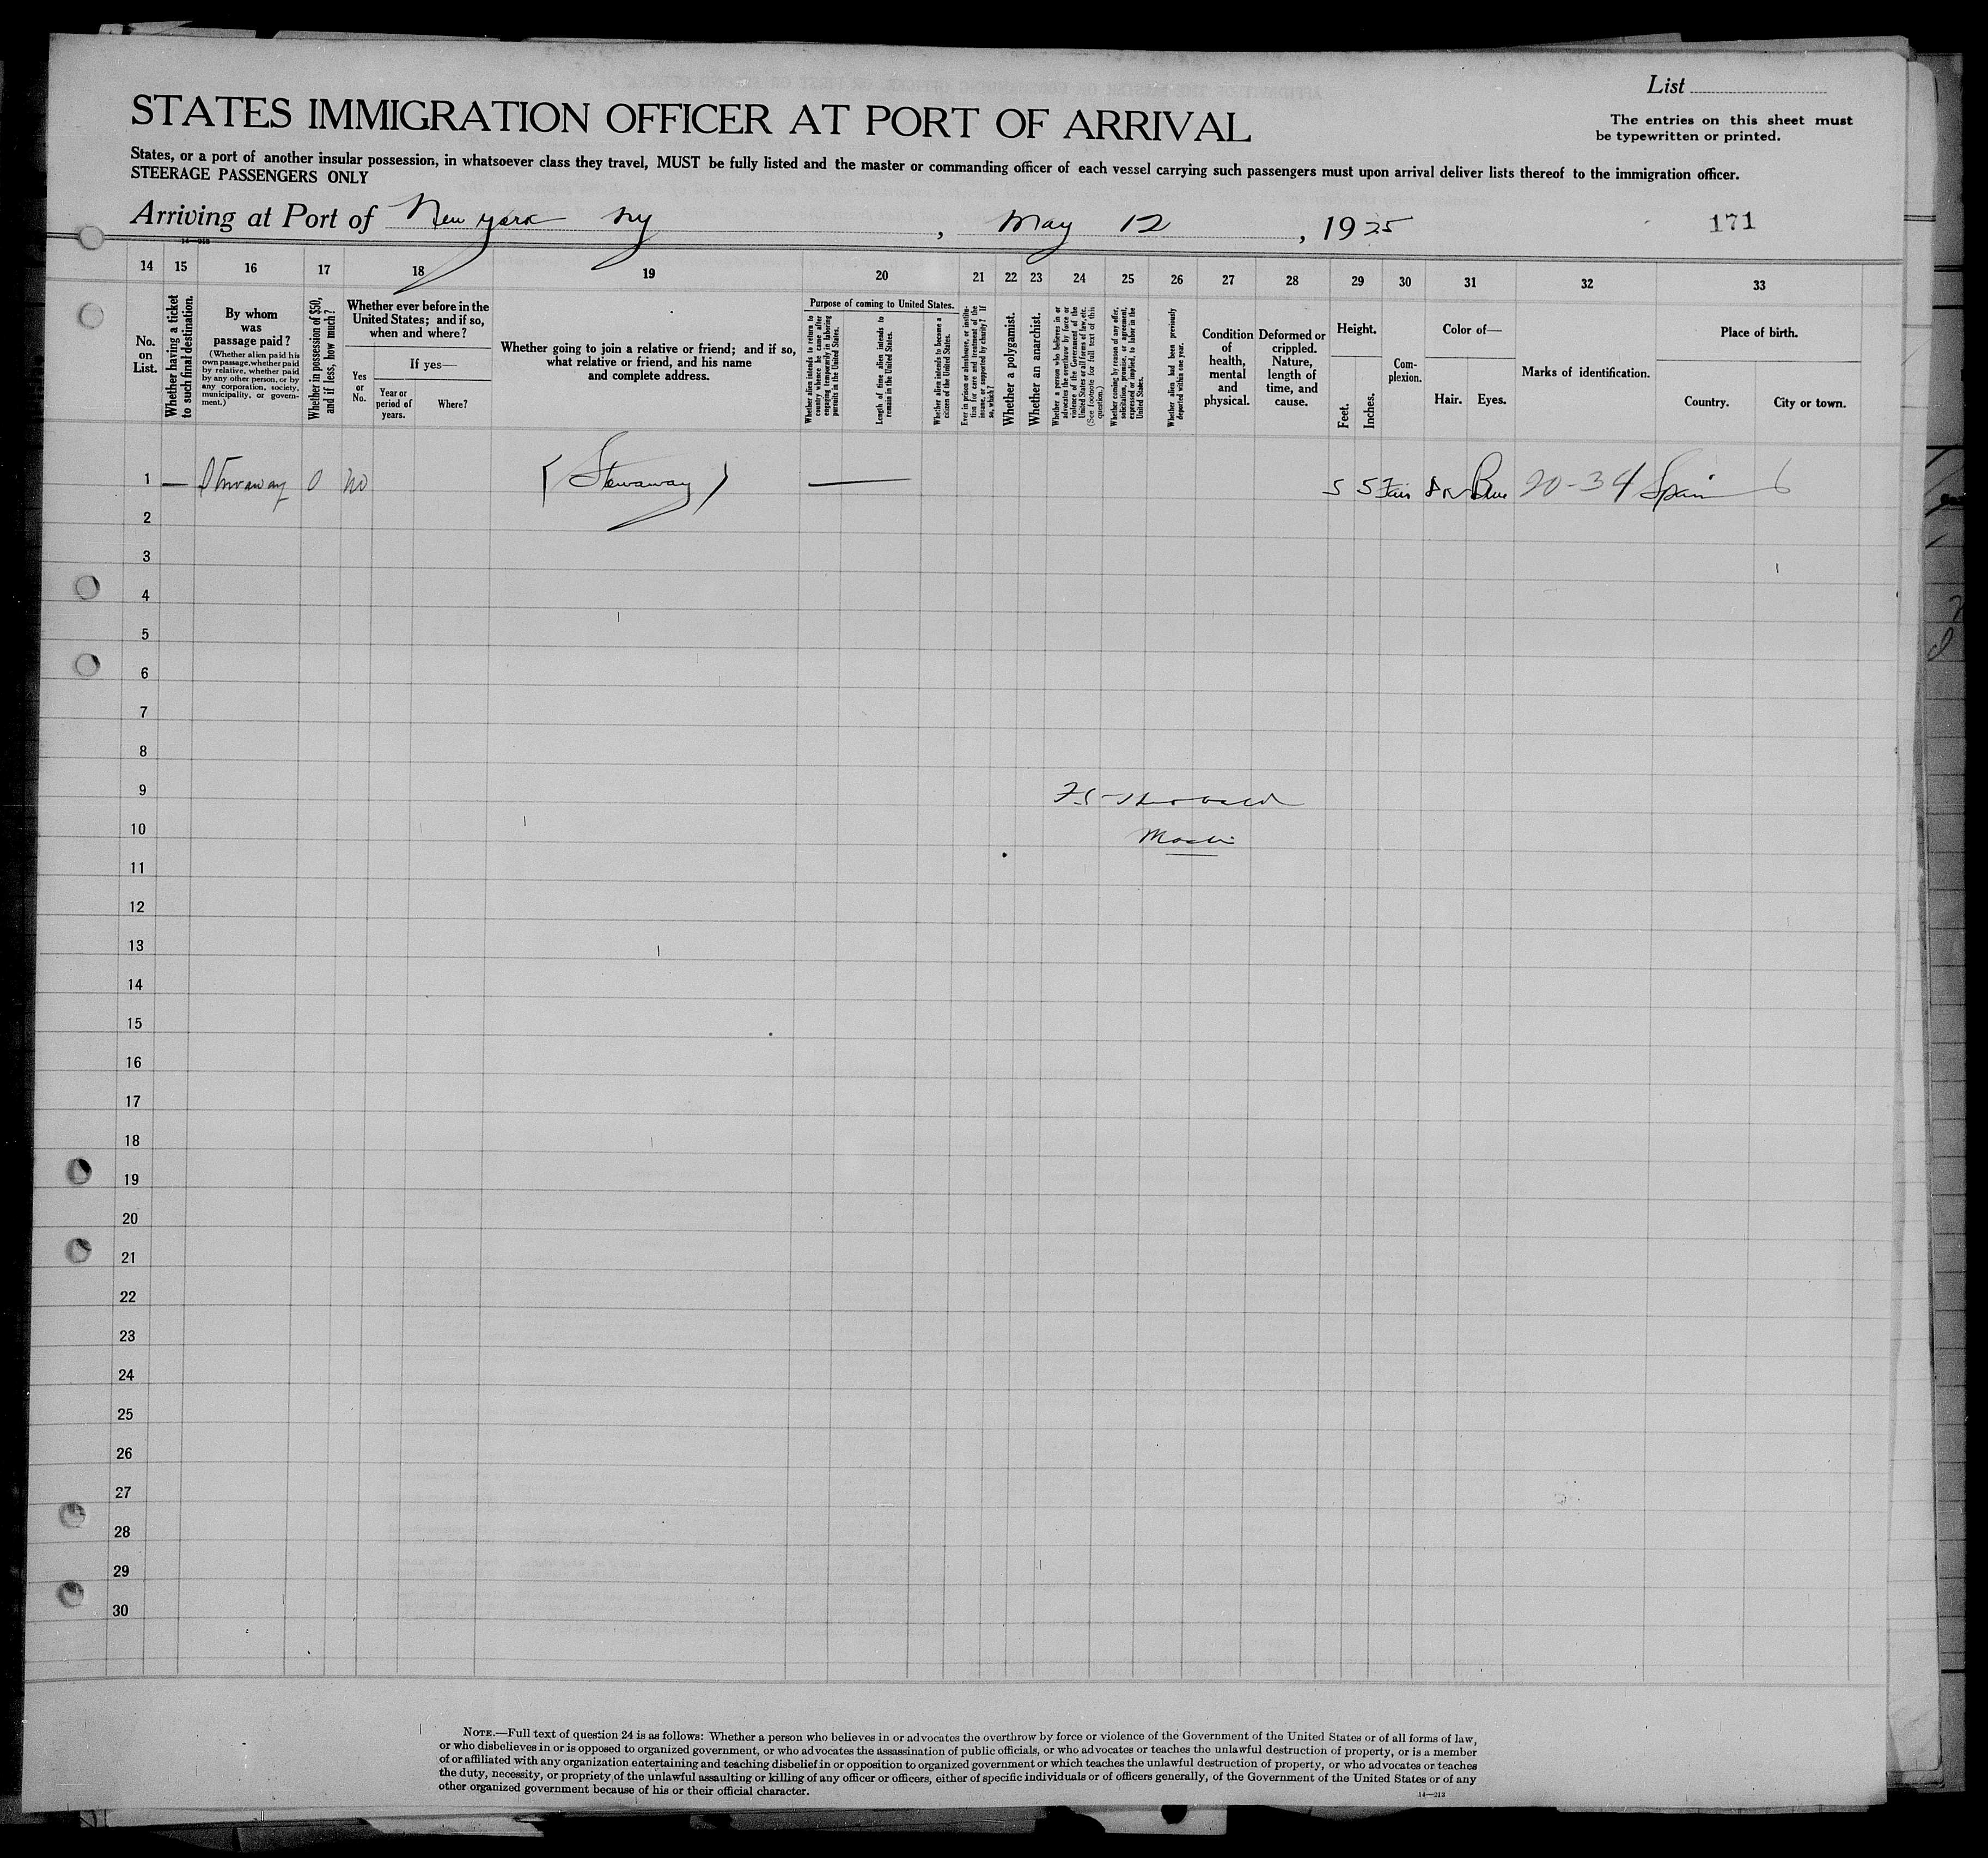 List
STATES IMMIGRATION OFFICER AT PORT OF ARRIVAL
The entries on this sheet must
be typewritten or printed.
States, or a port of another insular possession, in whatsoever class they travel, MUST be fully listed and the master or commanding officer of each vessel carrying such passengers must upon arrival deliver lists thereof to the immigration officer.
STEERAGE PASSENGERS ONLY
Arriving at Port of New York NY, May 12, 1925
171
14 15 16 17 18 19 20 21 22 23 24 25 26 27 28 29 30 31 32 33
No. on List.
Whether having a ticket to such final destination.
By whom was passage paid?
(Whether alien paid his own passage, whether paid by relative, whether paid by any other person, or by any corporation, society, municipality, or government.)
Whether in possession of $50, and if less, how much?
Whether ever before in the United States; and if so, when and where?
Yes or No.
If yes—
Year or period of years.
Where?
Whether going to join a relative or friend; and if so, what relative or friend, and his name and complete address.
Purpose of coming to United States.
Whether alien intends to return to country whence he came after engaging temporarily in laboring pursuits in the United States.
Length of time alien intends to remain in the United States.
Whether alien intends to become a citizen of the United States.
Ever in prison or almshouse, or institution for care and treatment of the insane, or supported by charity? If so, which?
Whether a polygamist.
Whether an anarchist.
Whether a person who believes in or advocates the overthrow by force or violence of the Government of the United States or all forms of law, etc. (See footnote for full text of this question.)
Whether coming by reason of any offer, solicitation, promise, or agreement, expressed or implied, to labor in the United States.
Whether alien had been previously deported within one year.
Condition of health, mental and physical.
Deformed or crippled. Nature, length of time, and cause.
Height.
Feet.
Inches.
Com-plexion.
Color of—
Hair.
Eyes.
Marks of identification.
Place of birth.
Country.
City or town.
1 — Stowaway 0 no (Stowaway) — 5 5 Fair Blue 20-34 Spain
2
3
4
5
6
7
8
9
10
11
12
13
14
15
16
17
18
19
20
21
22
23
24
25
26
27
28
29
30
NOTE.—Full text of question 24 is as follows: Whether a person who believes in or advocates the overthrow by force or violence of the Government of the United States or of all forms of law,
or who disbelieves in or is opposed to organized government, or who advocates the assassination of public officials, or who advocates or teaches the unlawful destruction of property, or is a member
of or affiliated with any organization entertaining and teaching disbelief in or opposition to organized government or which teaches the unlawful destruction of property, or who advocates or teaches
the duty, necessity, or propriety of the unlawful assaulting or killing of any officer or officers, either of specific individuals or of officers generally, of the Government of the United States or of any
other organized government because of his or their official character.
14—213